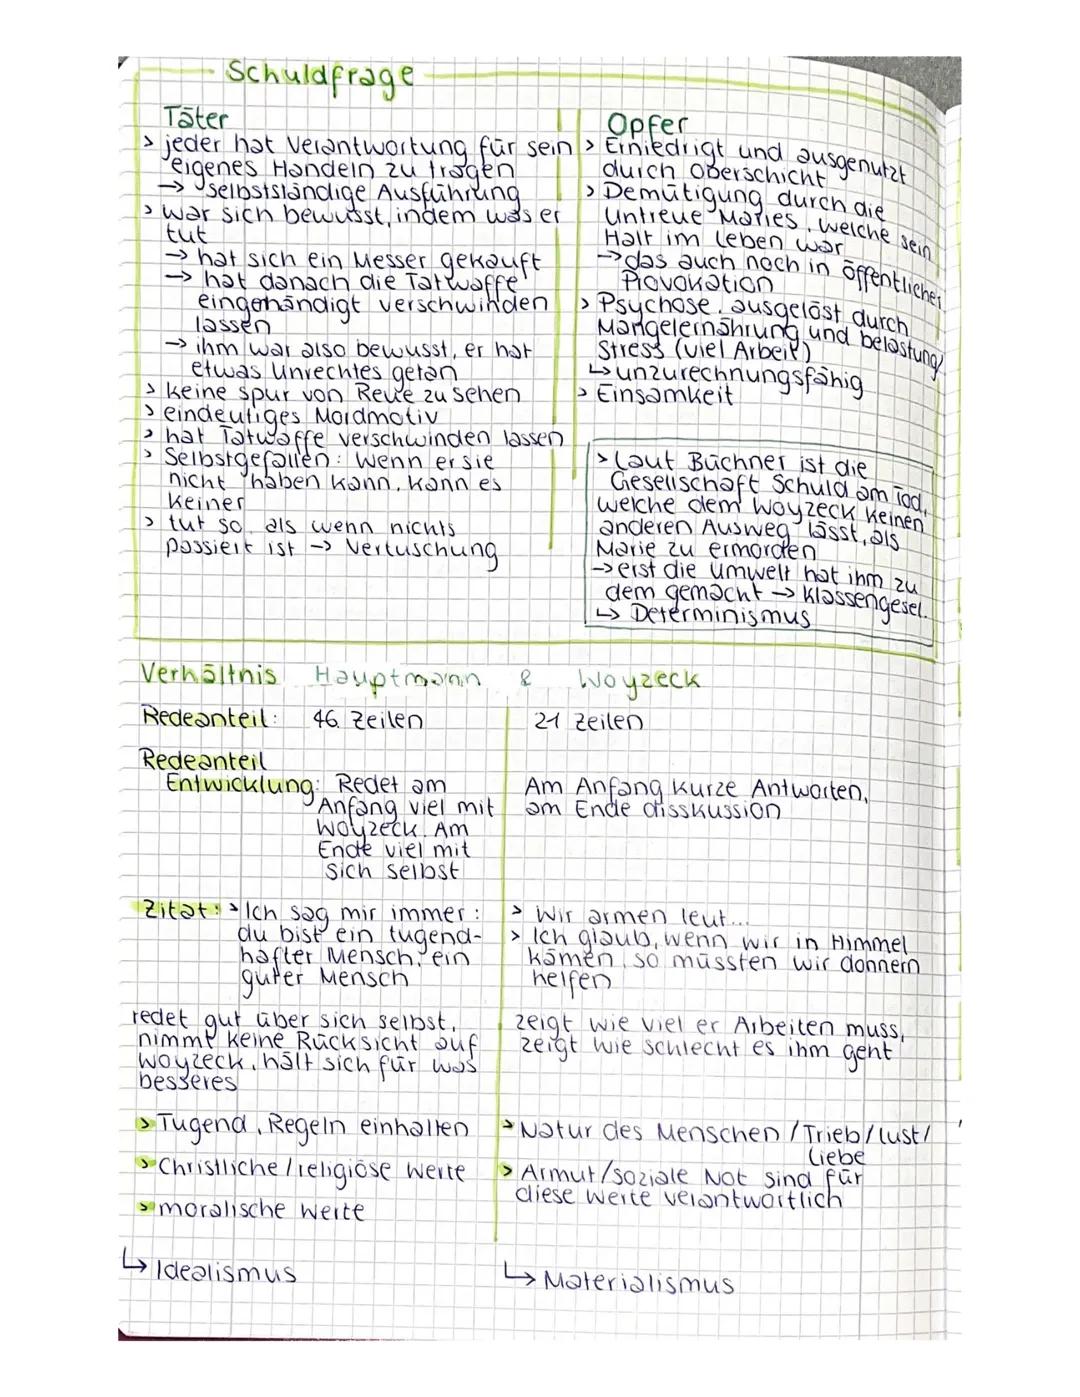 Schuldfrage
Täter
> jeder hat Verantwortung für sein
eigenes Handeln zu tragen
→ selbstständige Ausführung
> war sich bewusst, indem was er
tut
→ hat sich ein Messer gekauft
→ hat danach die Tatwaffe
eingehändigt verschwinden
lassen
→ ihm war also bewusst, er hat
etwas Unrechtes getan
> keine spur von Reue zu sehen
> eindeutiges Mordmotiv
> hat Tatwaffe verschwinden lassen
> Selbstgefallen: Wenn er sie
nicht haben kann, kann es
keiner
> tut so, als wenn nichts
passiert ist → Vertuschung
Opfer
> Erniedrigt und ausgenutzt
durch Oberschicht
> Demütigung durch die
Untreue Maries, welche sein
Halt im Leben war
→ das auch noch in öffentlicher
Provokation
> Psychose, ausgelöst durch
Mangelernährung und belastung/
Stress (viel Arbeit)
↳ unzurechnungsfähig
> Einsamkeit
> Laut Büchner ist die
Gesellschaft Schuld am Tod,
welche dem Woyzeck keinen
anderen Ausweg lässt, als
Marie zu ermorden
→ erst die Umwelt hat ihm zu
dem gemacht → Klassengesel.
↳ Determinismus
Verhältnis Hauptmann & Woyzeck
Redeanteil: 46 Zeilen 21 Zeilen
Redeanteil
Entwicklung: Redet am
Anfang viel mit
Woyzeck. Am
Ende viel mit
sich selbst
Am Anfang kurze Antworten,
am Ende disskussion
Zitat: > Ich sag mir immer:
du bist ein tugend-
hafter Mensch, ein
guter Mensch
> Wir armen leut...
> Ich glaub, wenn wir in Himmel
kämen, so müssten wir donnern
helfen
redet gut über sich selbst,
nimmt keine Rücksicht auf
Woyzeck, hält sich für was
besseres
zeigt wie viel er Arbeiten muss,
zeigt wie schlecht es ihm geht
> Tugend, Regeln einhalten
> Christliche/religiöse Werte
> moralische Werte
↳ Idealismus
> Natur des Menschen / Trieb/Lust/
Liebe
> Armut/soziale Not sind für
diese Werte verantwortlich
↳ Materialismus